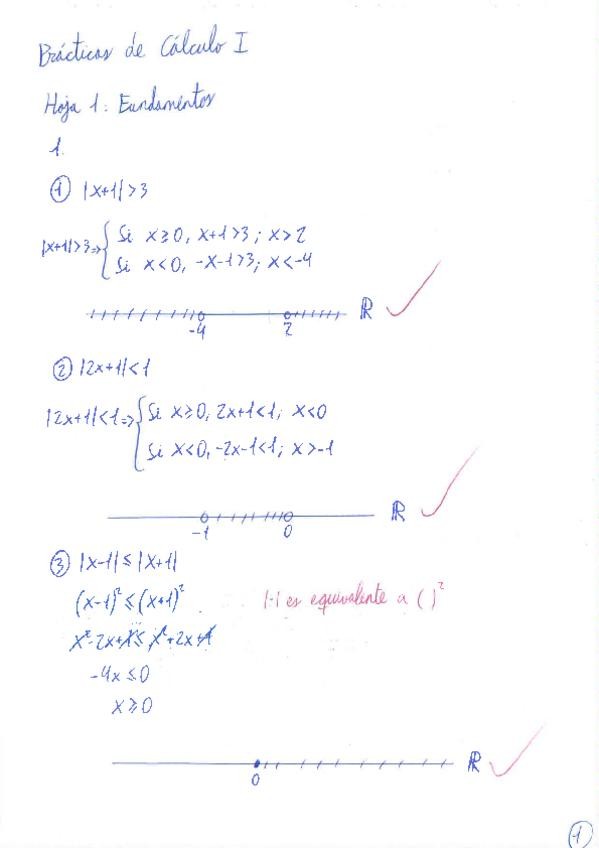 Prácticas de Cálculo I
Hoja 1: Fundamentos
1.
① |x+1|>3
|x+1|>3⇒{ Si x≥0, x+1>3; x>2
Si x<0, -x-1>3; x<-4
-4 2 ℝ
② |2x+1|<1
|2x+1|<1⇒{ Si x≥0, 2x+1<1; x<0
Si x<0, -2x-1<1; x>-1
-1 0 ℝ
③ |x-1|≤|x+1|
(x-1)²≤(x+1)² |·| es equivalente a ( )²
x²-2x+1≤x²+2x+1
-4x≤0
x≥0
0 ℝ
①